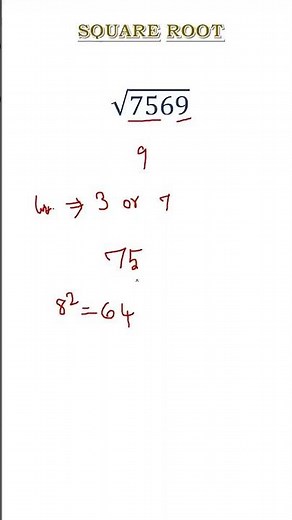 SQUARE ROOT
√7569
9
⇒ 3 or 7
75
8² = 64